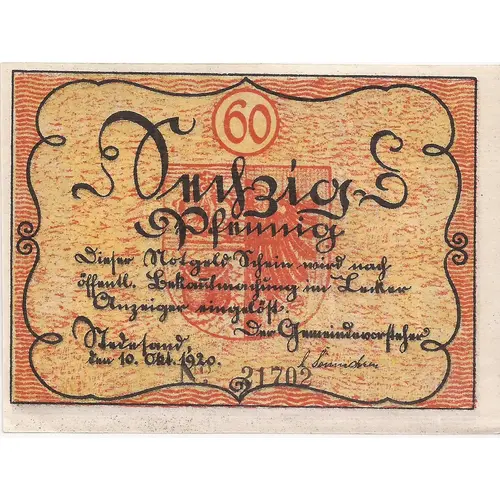 60
Sechzig
Pfennig
Dieser Notgeld Schein wird nach
öffentl. Bekantmachung im Lecker
Anzeiger eingelöst.
Stedesand, Der Gemeindevorsteher
den 10. Okt. 1920.
No 31702